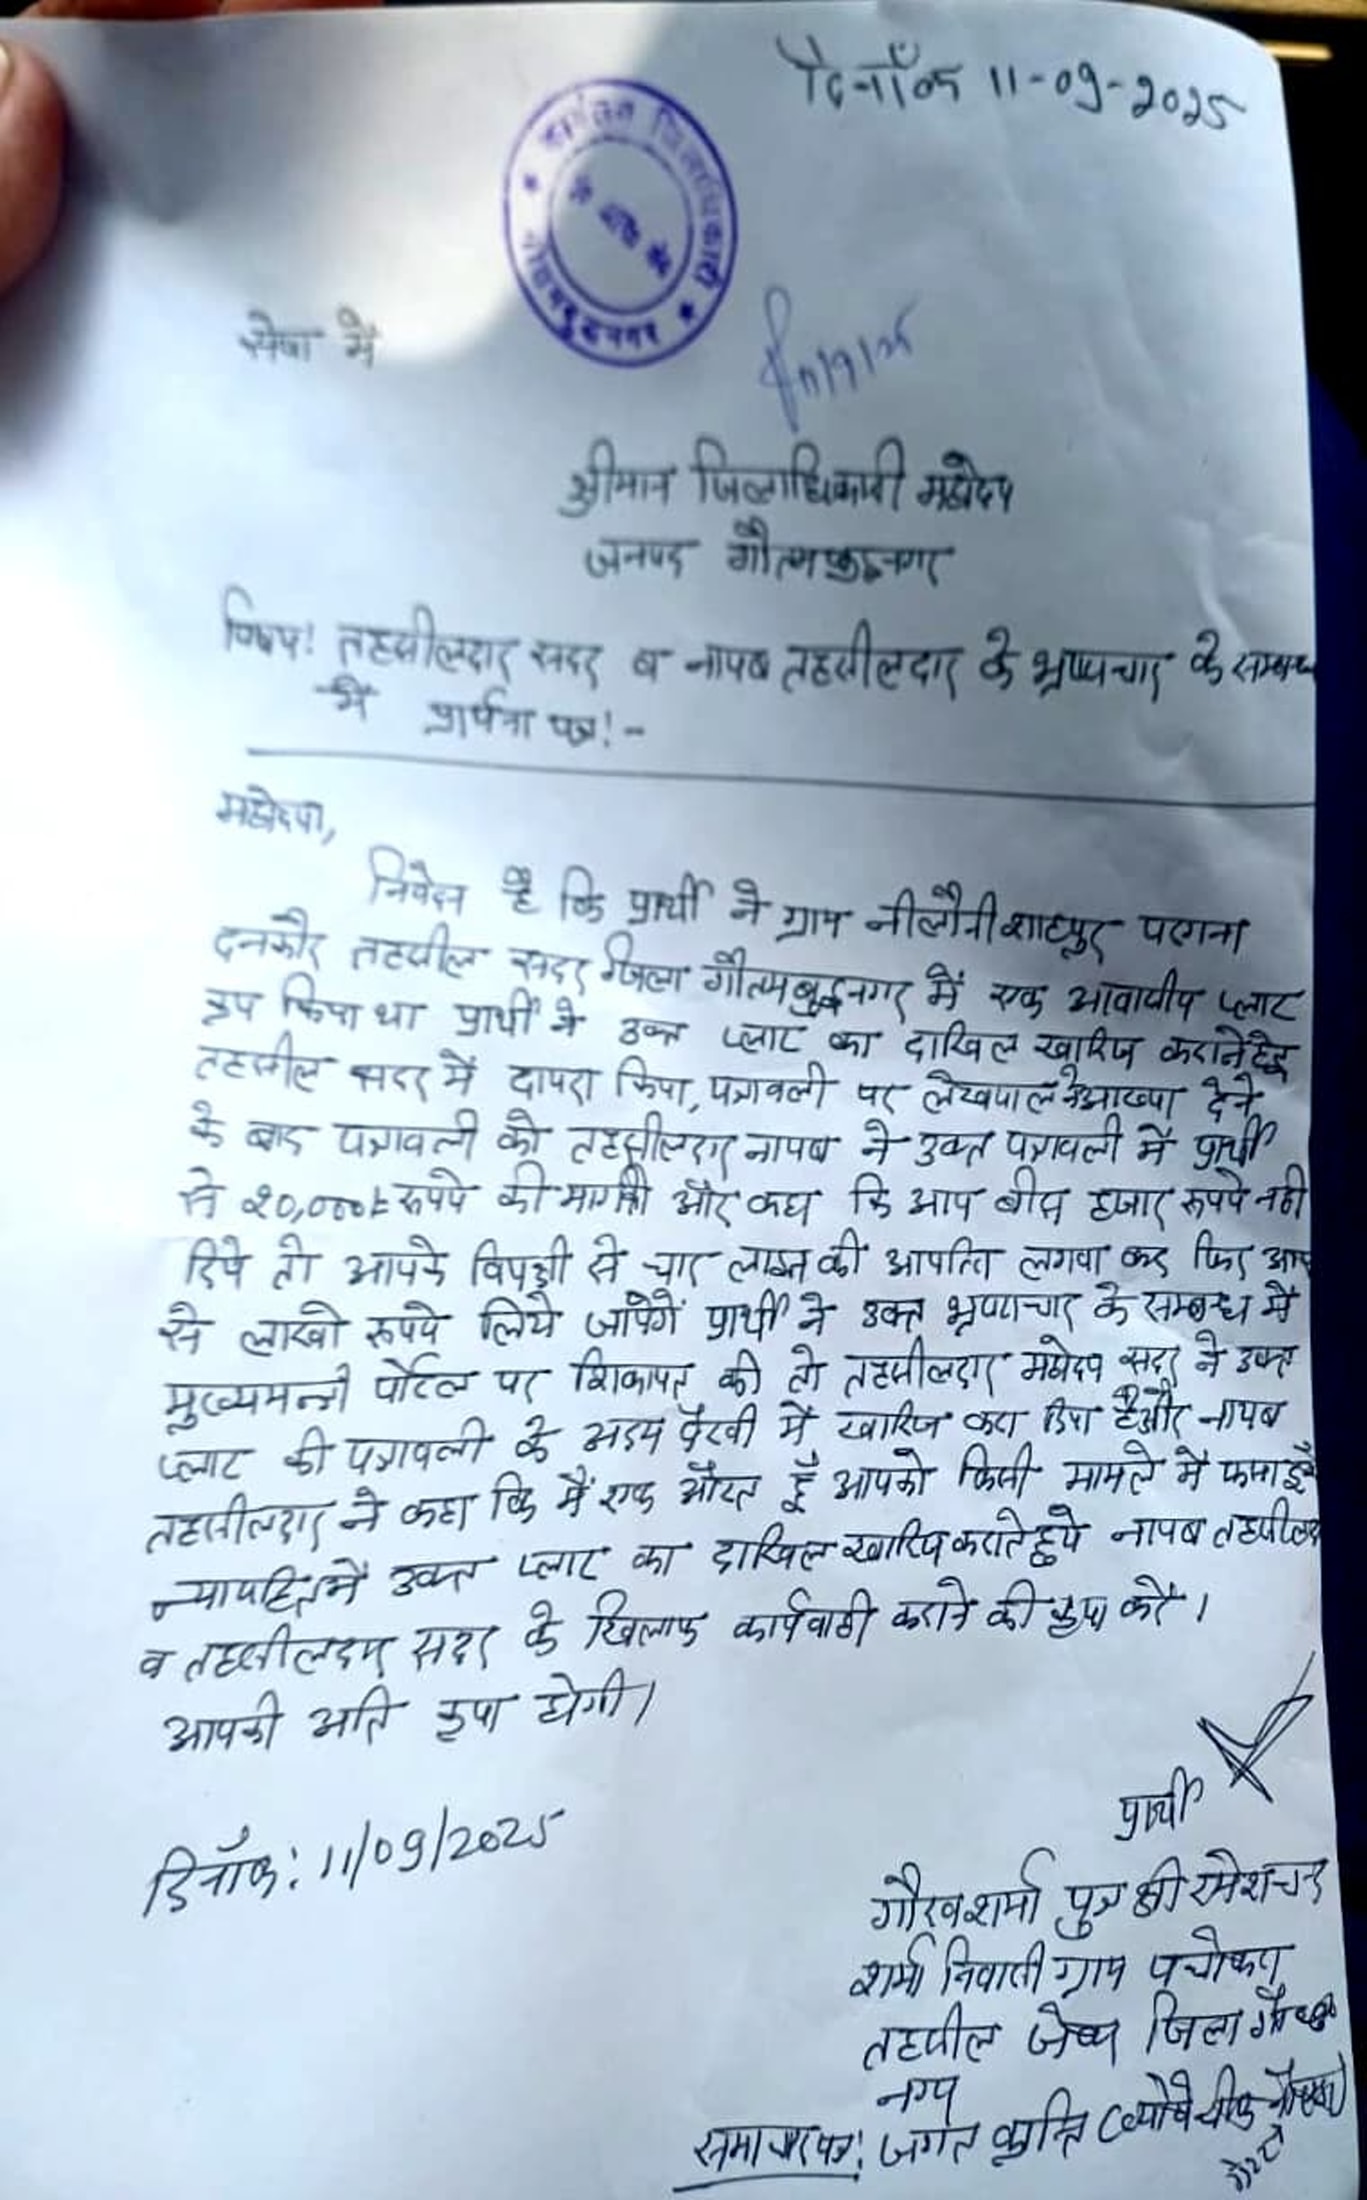 दिनाँक 11-09-2025
कार्यालय जिलाधिकारी
गौतमबुद्धनगर
सेवा में
श्रीमान जिलाधिकारी महोदय
जनपद गौतमबुद्धनगर
विषय! तहसीलदार सदर व नायब तहसीलदार के भ्रष्टाचार के सम्बन्ध
में प्रार्थना पत्र!-
महोदया,
निवेदन है कि प्रार्थी ने ग्राम नीलौनी शाहपुर परगना
दनकौर तहसील सदर जिला गौतमबुद्धनगर में एक आवासीय प्लाट
क्रय किया था प्रार्थी ने उक्त प्लाट का दाखिल खारिज कराने हेतु
तहसील सदर में दायरा किया, पत्रावली पर लेखपाल ने आख्या देने
के बाद पत्रावली को तहसीलदार नायब ने उक्त पत्रावली में प्रार्थी
से 20,000/= रूपये की माग की और कहा कि आप बीस हजार रूपये नही
दिये तो आपके विपक्षी से चार लाख की आपत्ति लगवा कर फिर आप
से लाखो रूपये लिये जायेगें प्रार्थी ने उक्त भ्रष्टाचार के सम्बन्ध में
मुख्यमन्त्री पोर्टल पर शिकायत की तो तहसीलदार महोदय सदर ने उक्त
प्लाट की पत्रावली के अदम पैरवी में खारिज करा दिया है और नायब
तहसीलदार ने कहा कि मैं एक औरत हूँ आपको किसी मामले में फसा
न्यायहित में उक्त प्लाट का दाखिल खारिज कराते हुये नायब तहसीलदार
व तहसीलदार सदर के खिलाफ कार्यवाही कराने की कृपा करें।
आपकी अति कृपा होगी।
प्रार्थी
दिनाँक: 11/09/2025
गौरव शर्मा पुत्र श्री रमेशचन्द
शर्मा निवासी ग्राम पचोकरा
तहसील जेवर जिला
नगर
समाचार पत्र! जगत क्रान्ति